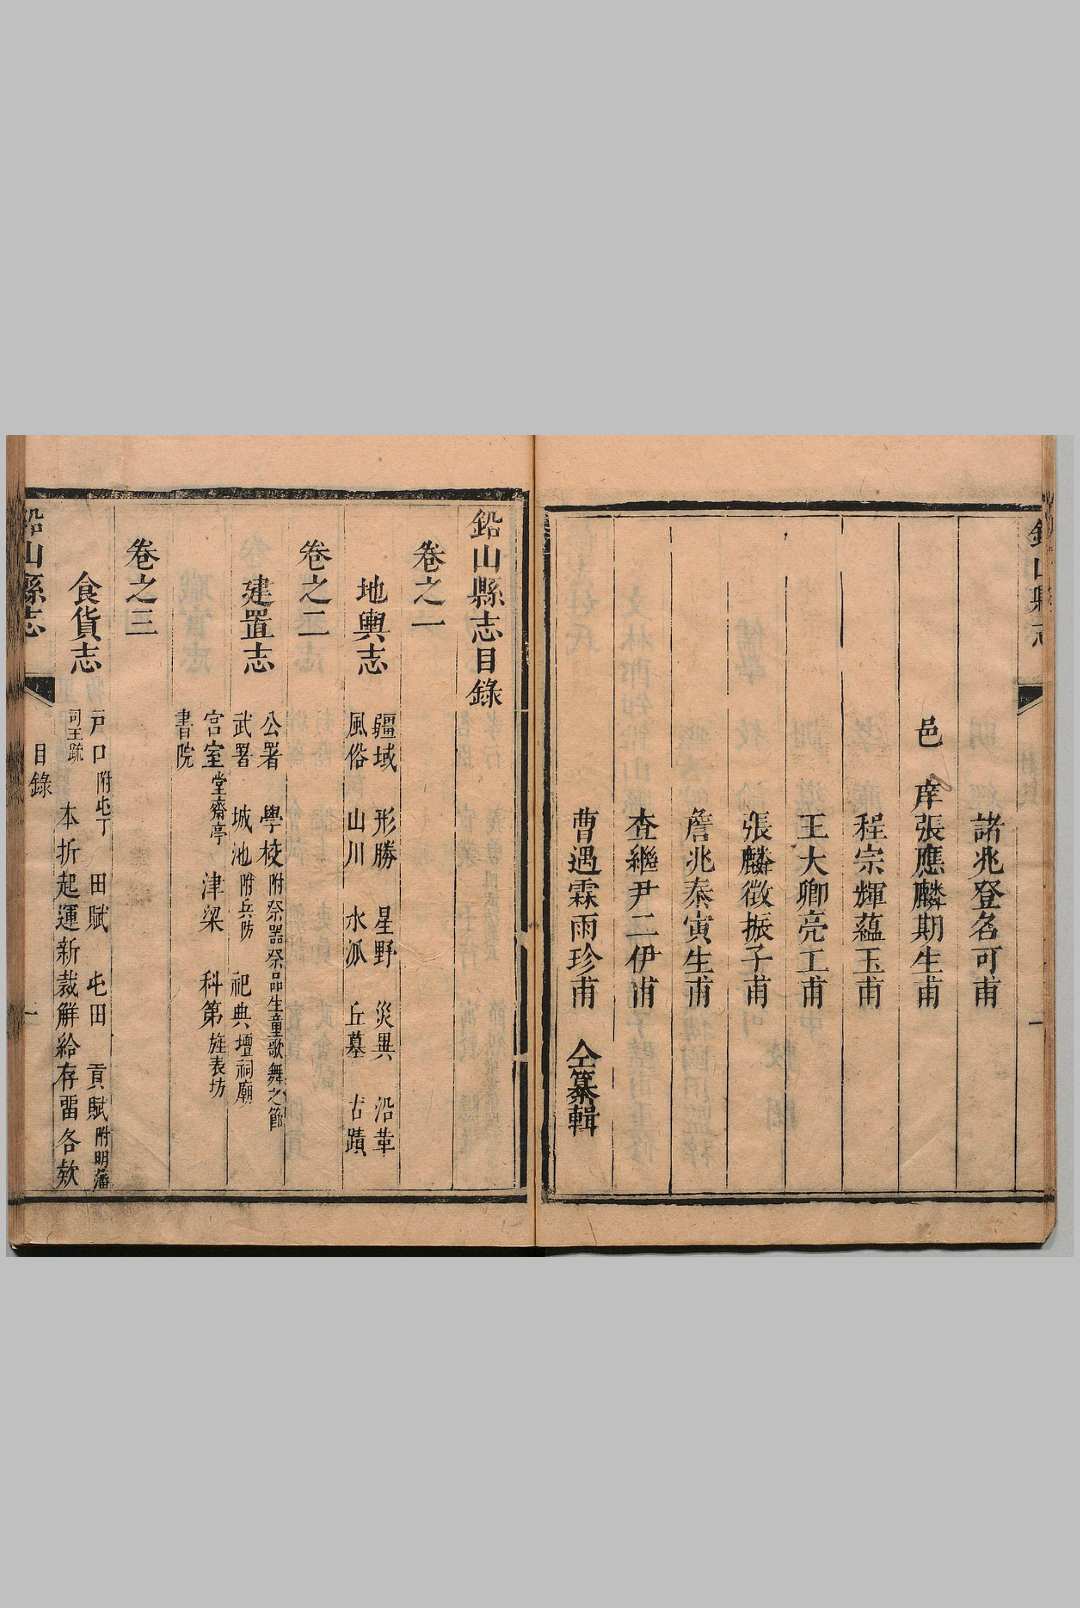 鉛山縣志
一
諸兆登名可甫
邑庠張應麟期生甫
程宗輝蘊玉甫
王大卿亮工甫
張麟徵振子甫
詹兆泰寅生甫
查繼尹二伊甫
曹遇霖雨珍甫 仝纂輯
鉛山縣志目錄
卷之一
地輿志 疆域 形勝 星野 災異 沿革
風俗 山川 水派 丘墓 古蹟
卷之二
建置志 公署 學校附祭器祭品生童歌舞之節
武署 城池附兵防 祀典壇祠廟
宮室堂齋亭 津梁 科第旌表坊
書院
卷之三
食貨志 戶口附屯丁 田賦 屯田 貢賦附明藩
司王疏 本折起運新裁解給存畱各欵
鉛山縣志 目錄 一